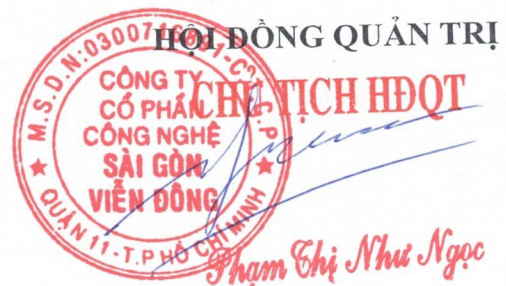 HỘI ĐỒNG QUẢN TRỊ
CHỦ TỊCH HĐQT
M.S.D.N:
C.T.C.P
CÔNG TY
CỔ PHẦN
CÔNG NGHỆ
SÀI GÒN
VIỄN ĐÔNG
QUẬN 11 - T.P HỒ CHÍ MINH
Phạm Thị Như Ngọc